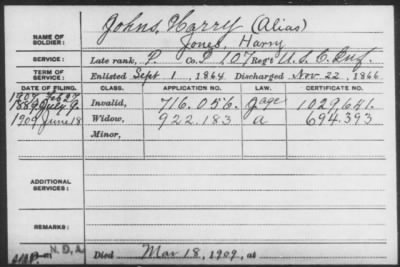 NAME OF SOLDIER: Johns, Harry (Alias)
Jones, Harry
SERVICE: Late rank, P. Co. 107 Reg't U.S.C. Inf.
TERM OF SERVICE: Enlisted Sept 1, 1864. Discharged Nov. 22, 1866.
DATE OF FILING. CLASS. APPLICATION NO. LAW. CERTIFICATE NO.
1907 Feb 27
1889 July 9. Invalid, 716.056. Jage 1029.641.
1909 June 18 Widow, 922.183 a 694.393
Minor,
ADDITIONAL SERVICES:
REMARKS:
N.D.A. Died Mar 18, 1909, at